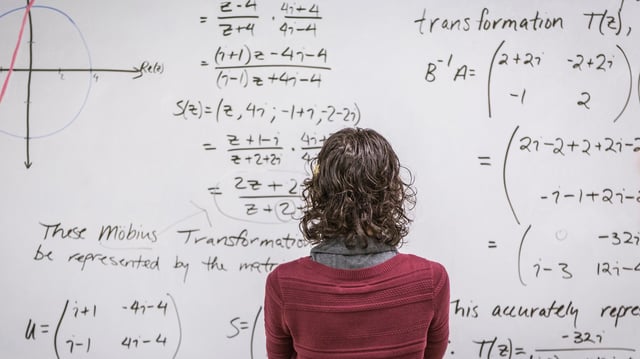 = z-4/z+4 · 4i+4/4i-4
= (i+1)z-4i-4/(i-1)z+4i-4
S(z)=(z, 4i; -1+i, -2-2i)
= z+1-i/z+2+2i · 4i
= 2z+2/z+2
These Möbius Transformatio
be represented by the matr
U = ( i+1 -4i-4
i-1 4i-4 )
S= (
Re(z)
2 4
transformation T(z),
B⁻¹A = ( 2+2i -2+2i
-1 2 )
= ( 2i-2+2+2i-
-i-1+2i-
= ( -32i
i-3 12i-4
This accurately repre
T(z)= -32i